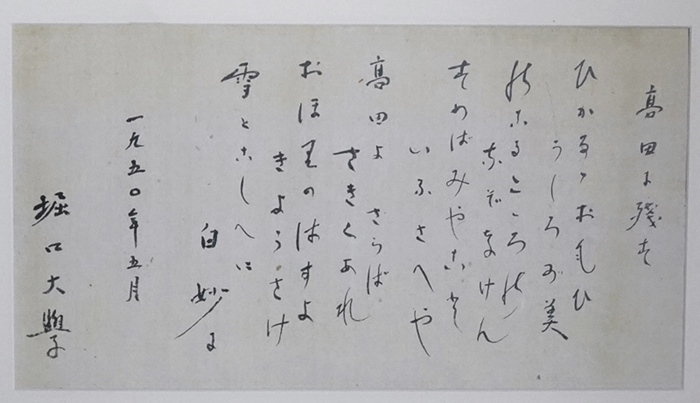 高田に残す
ひかるゝおもひ
うしろが美
のこるこころの
なぞなけん
すめばみやこと
いふさへや
高田よ さらば
さきくあれ
おほりのはすよ
きようさけ
雪とこしへに
白妙に
一九五〇年五月
堀口大學